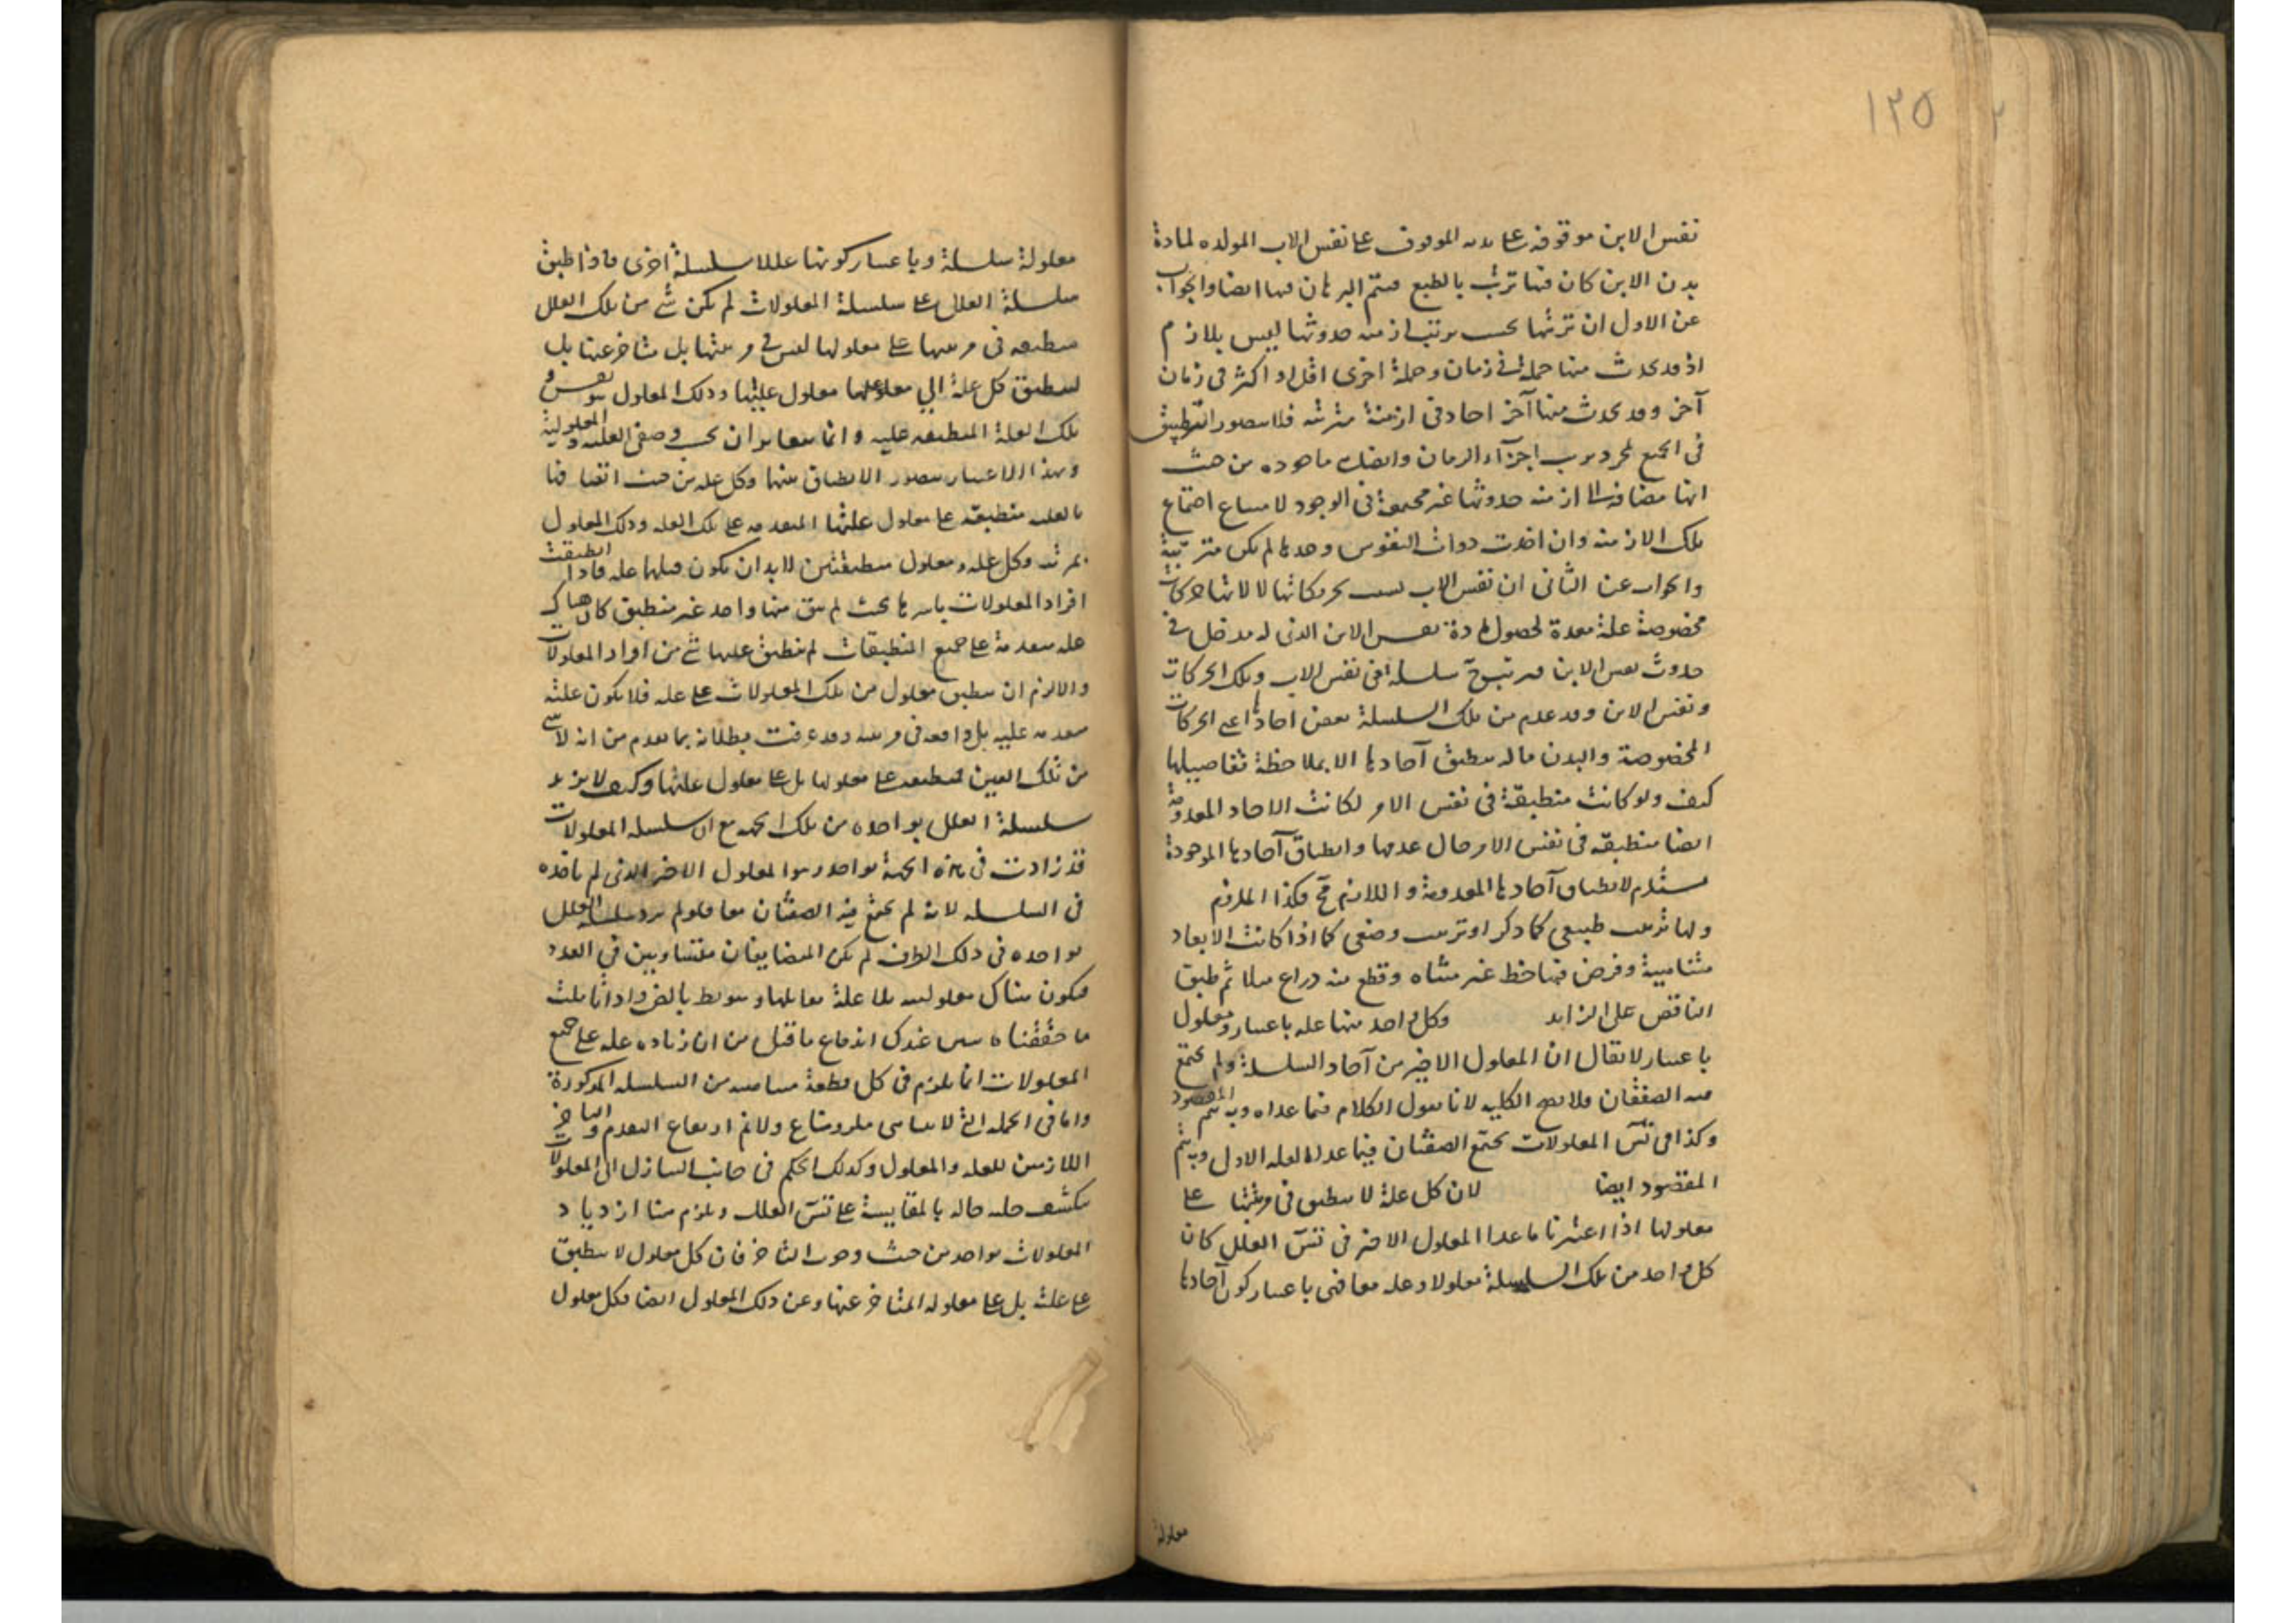 ١٢٥
نفس الابن موقوفة على بدنه الموقوف على نفس الاب المولده لمادة
بدن الابن كان فيها ترتب بالطبع فيتم البرهان فيها ايضا والجواب
عن الاول ان ترتبها بحسب ترتب ازمنه حدوثها ليس بلازم
اذ قد يحدث منها جملة في زمان وجملة اخرى اقل او اكثر في زمان
آخر وقد يحدث منها آخر احاد في ازمنة مترتبه فلا يتصور التطبيق
في الجميع بمجرد ترتب اجزآء الزمان وايضا ماخوذه من حيث
انها مضافه الى ازمنه حدوثها غير مجتمعة في الوجود لامتناع اجتماع
تلك الازمنه وان اخذت ذوات النفوس وحدها لم يكن مترتبة
والجواب عن الثاني ان نفس الاب بسبب حركاتها لا لذاتها حركات
مخصوصة علة معدة لحصول مادة نفس الابن الذى له مدخل في
حدوث نفس الابن فترتبت ح سلسلة اعني نفس الاب وتلك الحركات
ونفس الابن وقد عدم من تلك السلسلة بعض احادها اعني الحركات
المخصوصة والبدن فلا ينطبق آحادها الا بملاحظة تفاصيلها
كيف ولو كانت منطبقة في نفس الامر لكانت الاحاد المعدومة
ايضا منطبقه في نفس الامر حال عدمها وانطباق آحادها الموجودة
مستلزم لانطباق آحادها المعدومة واللازم مح فكذا الملزوم
ولها ترتب طبيعي كما ذكر او ترتب وضعي كما اذا كانت الابعاد
متناهية وفرض فيها خط غير متناه وقطع منه ذراع مثلا ثم طبق
الناقص على الزايد وكل واحد منها علة باعتبار ومعلول
باعتبار لا يقال ان المعلول الاخير من آحاد السلسلة ولم يجتمع
فيه الصفتان فلا يصح الكليه لانا نقول الكلام فيما عداه وبه يتم المقصود
وكذا في تس المعلولات يجتمع الصفتان فيما عدا العله الاولى وبه يتم
المقصود ايضا لان كل علة لا ينطبق في مرتبتها على
معلولها اذا اعتبرنا ما عدا المعلول الاخير في تس العلل كان
كل واحد من تلك السلسلة معلولا وعلة معا فهي باعتبار كون آحادها
معلولة
معلولة سلسلة وباعتبار كونها عللا سلسلة اخرى فاذا طبق
سلسلة العلل على سلسلة المعلولات لم يكن شئ من تلك العلل
منطبقه في مرتبتها على معلولها ليس في مرتبتها بل متاخر عنها بل
ينطبق كل علة الى معلولها معلول عليتها وذلك المعلول هو نفس
تلك العلة المنطبقه عليه وانما يتغايران بحسب وصفى العليه والمعلولية
وبهذا الاعتبار يتصور الانطباق بينهما وكل علة من حيث اتصافها
بالعليه منطبقه على معلول علتها المتقدمه على تلك العله وذلك المعلول
بمرتبه وكل علة ومعلول منطبقتين لابد ان يكون قبلهما علة فاذا انطبقت
افراد المعلولات باسرها بحيث لم يبق منها واحد غير منطبق كان هناك
علة متقدمة على جميع المنطبقات لم ينطبق عليها شئ من افراد المعلولات
والا لزم ان ينطبق معلول من تلك المعلولات على علة فلا يكون علته
متقدمه عليه بل واقعه في مرتبته وقد عرفت بطلانه بما تقدم من انه لا شئ
من تلك العلل منطبقه على معلولها بل على معلول علتها وكيف لا يزيد
سلسلة العلل بواحده من تلك الجهه مع ان سلسله المعلولات
قد زادت في هذه الجهة بواحد وهو المعلول الاخير الذى لم ناخذه
في السلسله لانه لم يجتمع فيه الصفتان معا فلو لم يزد سلسلة العلل
بواحده في ذلك الطرف لم يكن المتضايفان متساويين في العدد
فيكون هناك معلوليه بلا علة تقابلها وهو بط بالضرورة واذا تاملت
ما حققناه تبين عندك اندفاع ما قيل من ان زيادة علة على جميع
المعلولات انما يلزم في كل قطعة متناهيه من السلسله المذكورة
واما في الجملة التي لا يتناهى فلزومها مم ولا يلزم ارتفاع التقدم والتاخر
اللازمين للعله والمعلول وكذلك الحكم في جانب التنازل الى المعلولات
ينكشف جلية حاله بالمقايسة على تس العلل ويلزم هنا ازدياد
المعلولات بواحد من حيث وجوب التاخر فان كل معلول لا ينطبق
على علته بل على معلوله المتاخر عنها وعن ذلك المعلول ايضا فكل معلول